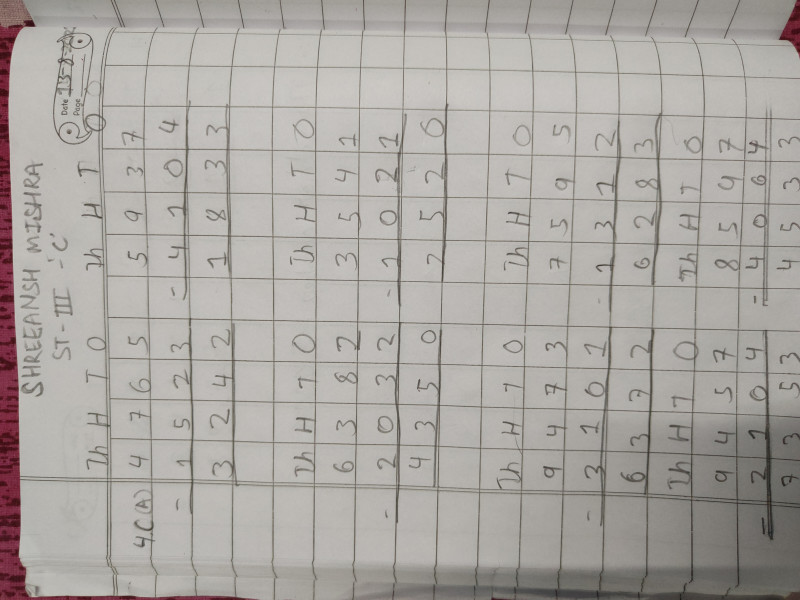 SHREEANSH MISHRA
ST-III-'C'
Date 13-8-
Page
Th H T O Th H T O
4.C(A) 4 7 6 5 5 9 3 7
- 1 5 2 3 - 4 1 0 4
3 2 4 2 1 8 3 3
Th H T O Th H T O
6 3 8 2 3 5 4 1
- 2 0 3 2 - 1 0 2 1
4 3 5 0 2 5 2 0
Th H T O Th H T O
9 4 7 3 7 5 9 5
- 3 1 0 1 - 1 3 1 2
6 3 7 2 6 2 8 3
Th H T O Th H T O
9 4 5 7 8 5 9 7
- 2 1 0 4 - 4 0 6 4
7 3 5 3 4 5 3 3